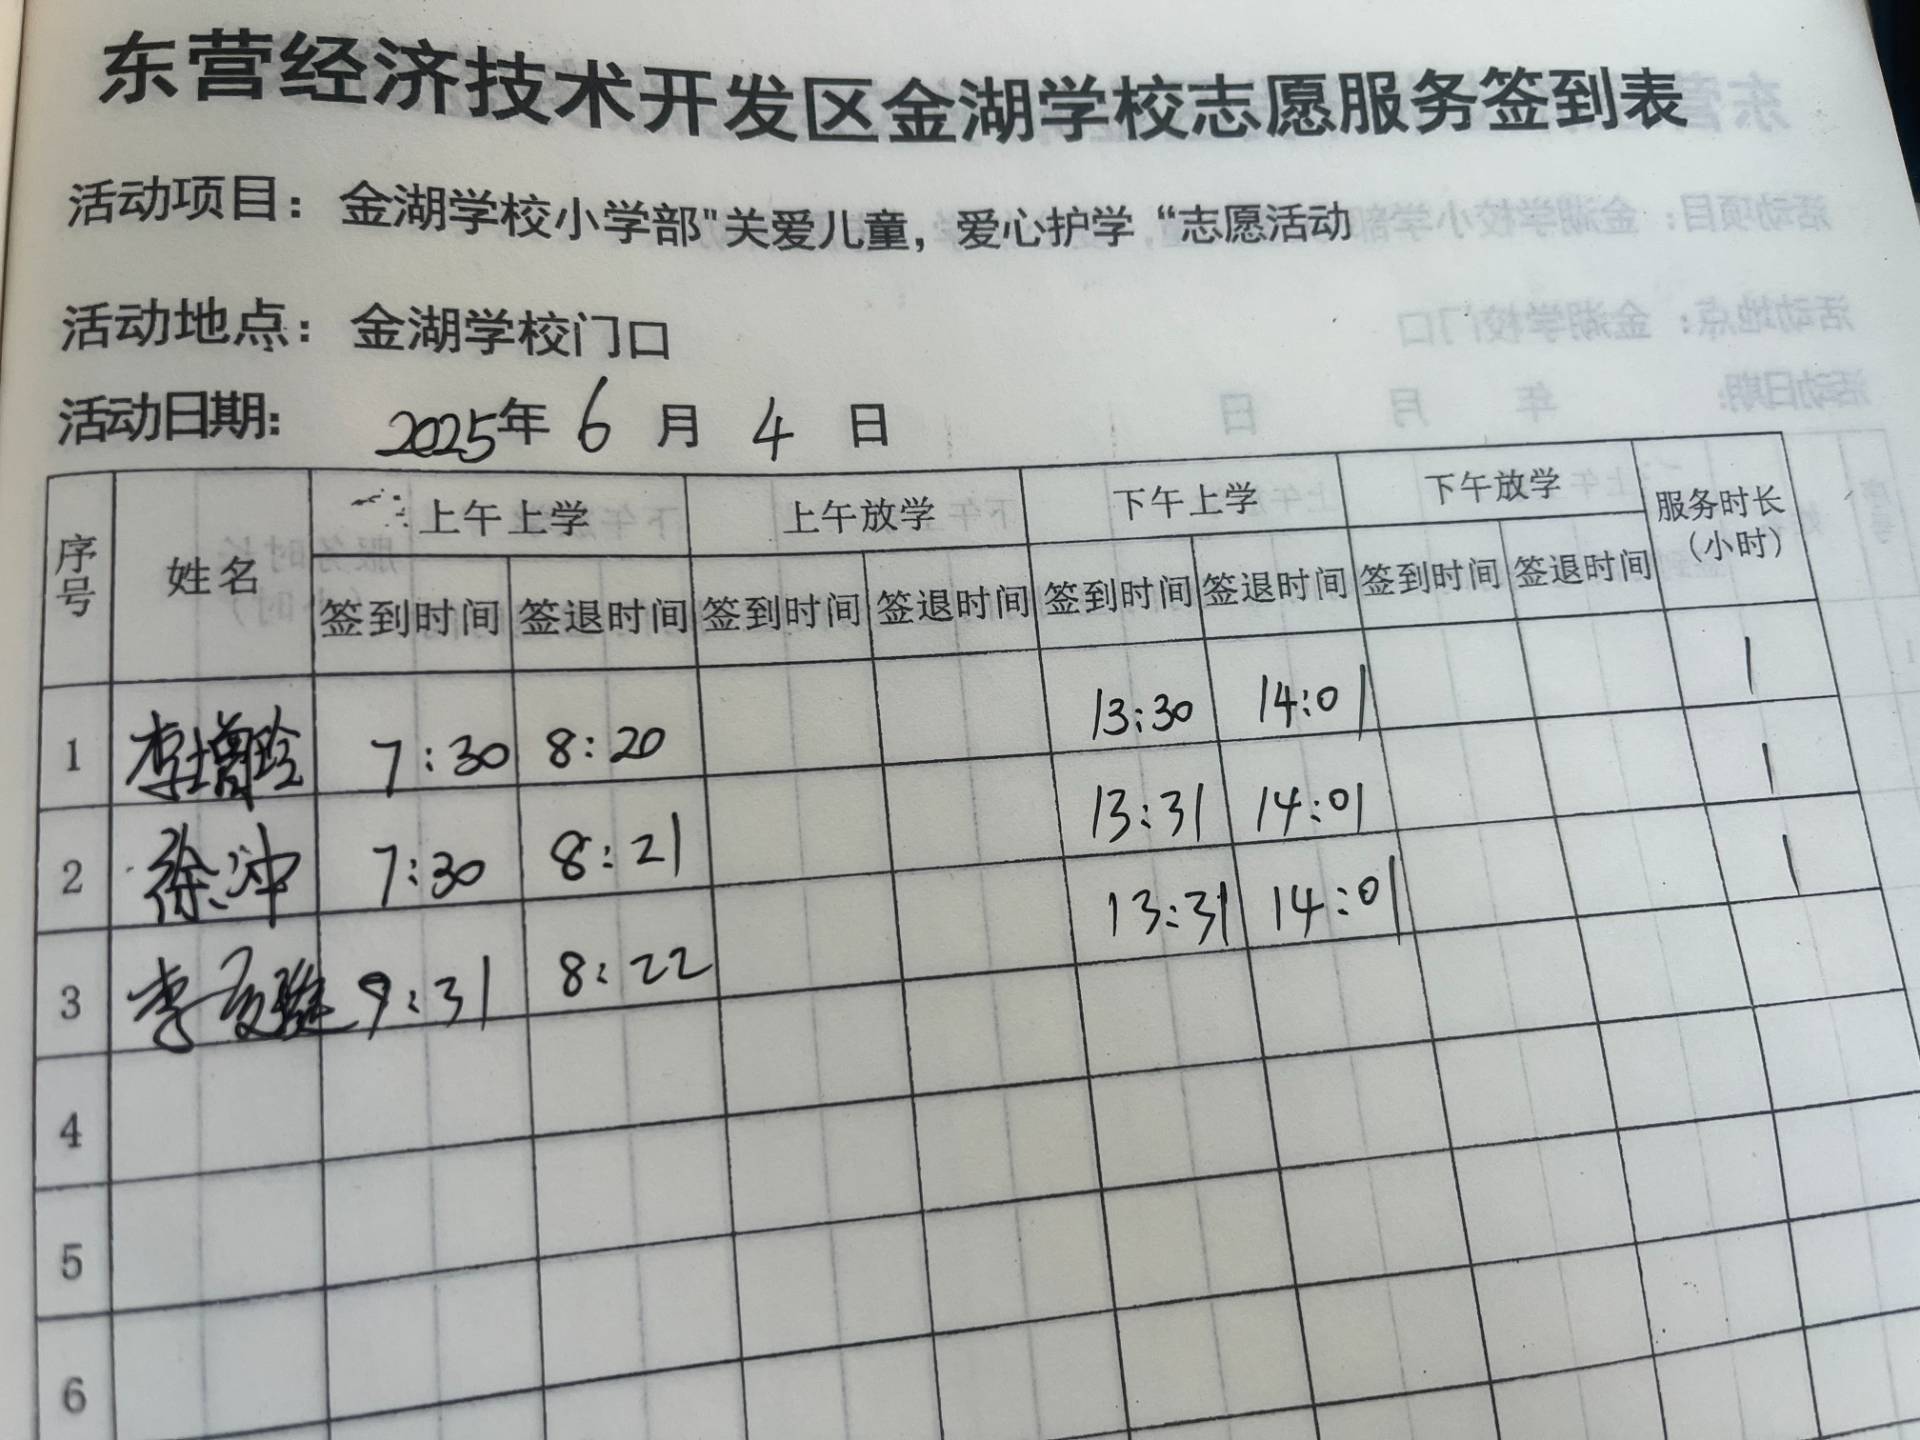 东营经济技术开发区金湖学校志愿服务签到表
活动项目：金湖学校小学部"关爱儿童，爱心护学“志愿活动
活动地点：金湖学校门口
活动日期：2025年6月4日
序号 姓名 上午上学 上午放学 下午上学 下午放学 服务时长（小时）
签到时间 签退时间 签到时间 签退时间 签到时间 签退时间 签到时间 签退时间
1 李增玲 7:30 8:20 13:30 14:01 1
2 徐冲 7:30 8:21 13:31 14:01 1
3 李 9:31 8:22 13:31 14:01 1
4
5
6